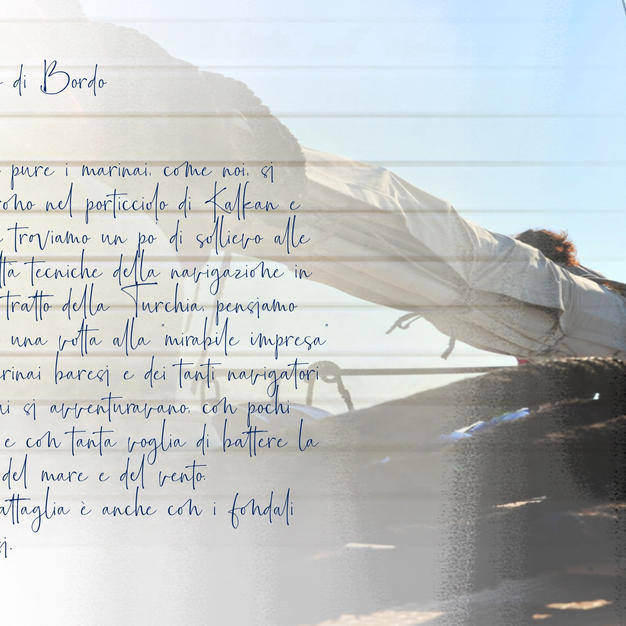 di Bordo
pure i marinai, come noi, si
nel porticciolo di Kalkan e
troviamo un po di sollievo alle
tecniche della navigazione in
tratto della Turchia, pensiamo
una volta alla "mirabile impresa"
baresi e dei tanti navigatori
si avventuravano, con pochi
e con tanta voglia di battere la
del mare e del vento.
è anche con i fondali